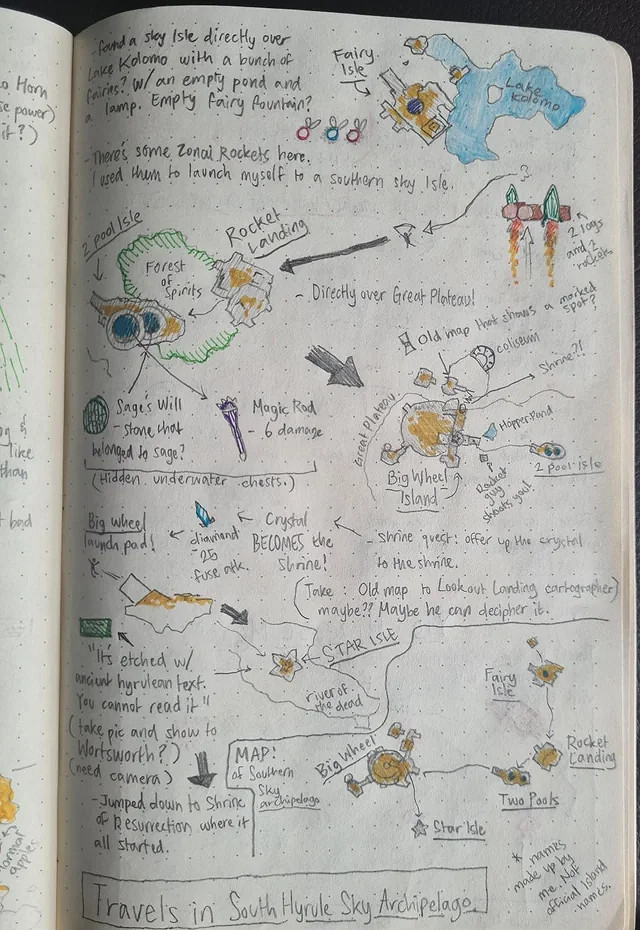 o Horn
ie power)
it?)
- found a sky Isle directly over
Lake Kolomo with a bunch of
fairies? w/ an empty pond and
a lamp. Empty fairy fountain?
Fairy
Isle
Lake
Kolomo
- There's some Zonai Rockets here.
I used them to launch myself to a southern sky Isle.
2 logs
and 2
rockets
2 pool Isle
Rocket
Landing
Forest
of
Spirits
- Directly over Great Plateau!
Old map that shows a marked
spot?
coliseum
Shrine?!
Great Plateau
Hopper Pond
2 pool isle
Big Wheel
Island
Rocket
guy
shoots you!
Sage's Will
- stone that
belonged to sage?
Magic Rod
- 6 damage
(Hidden underwater chests.)
Big wheel
launch pad!
diamond
- 25
fuse atk.
Crystal
BECOMES the
Shrine!
- Shrine quest: offer up the crystal
to the shrine.
(Take: Old map to Lookout Landing cartographer)
maybe?? Maybe he can decipher it.
STAR ISLE
river of
the dead
"It's etched w/
ancient hyrulean text.
You cannot read it"
(take pic and show to
Wortsworth?)
(need camera)
- Jumped down to Shrine
of Resurrection where it
all started.
MAP!
of Southern
Sky
archipelago
Fairy
Isle
Rocket
Landing
Two Pools
Big Wheel
Star Isle
* names
made up by
me. Not
official island
names.
Travels in South Hyrule Sky Archipelago
like
than
t bad
normal
apples